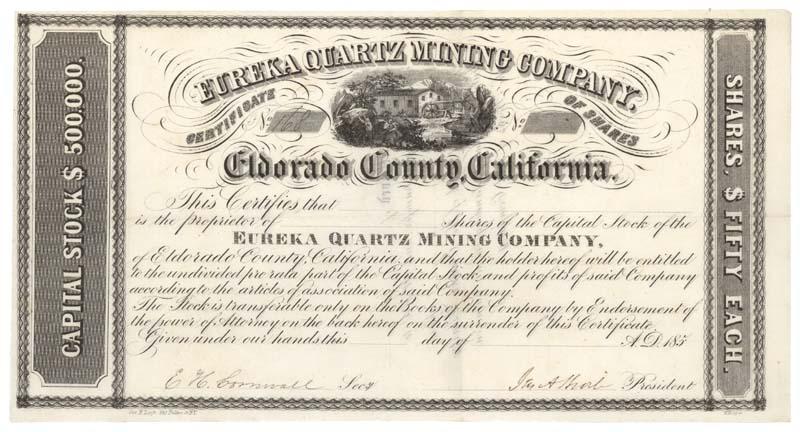 EUREKA QUARTZ MINING COMPANY,
CERTIFICATE OF SHARES
No. 168 No.
Eldorado County, California.
CAPITAL STOCK $ 500.000.
This Certifies that
is the proprietor of Shares of the Capital Stock of the
EUREKA QUARTZ MINING COMPANY,
of Eldorado County, California, and that the holder hereof will be entitled
to the undivided pro rata part of the Capital Stock and profits of said Company
according to the articles of association of said Company.
The Stock is transferable only on the Books of the Company by Endorsement of
the power of Attorney on the back hereof on the surrender of this Certificate
Given under our hands this day of A.D. 185
E H. Cornwall Secy President
SHARES, $ FIFTY EACH.